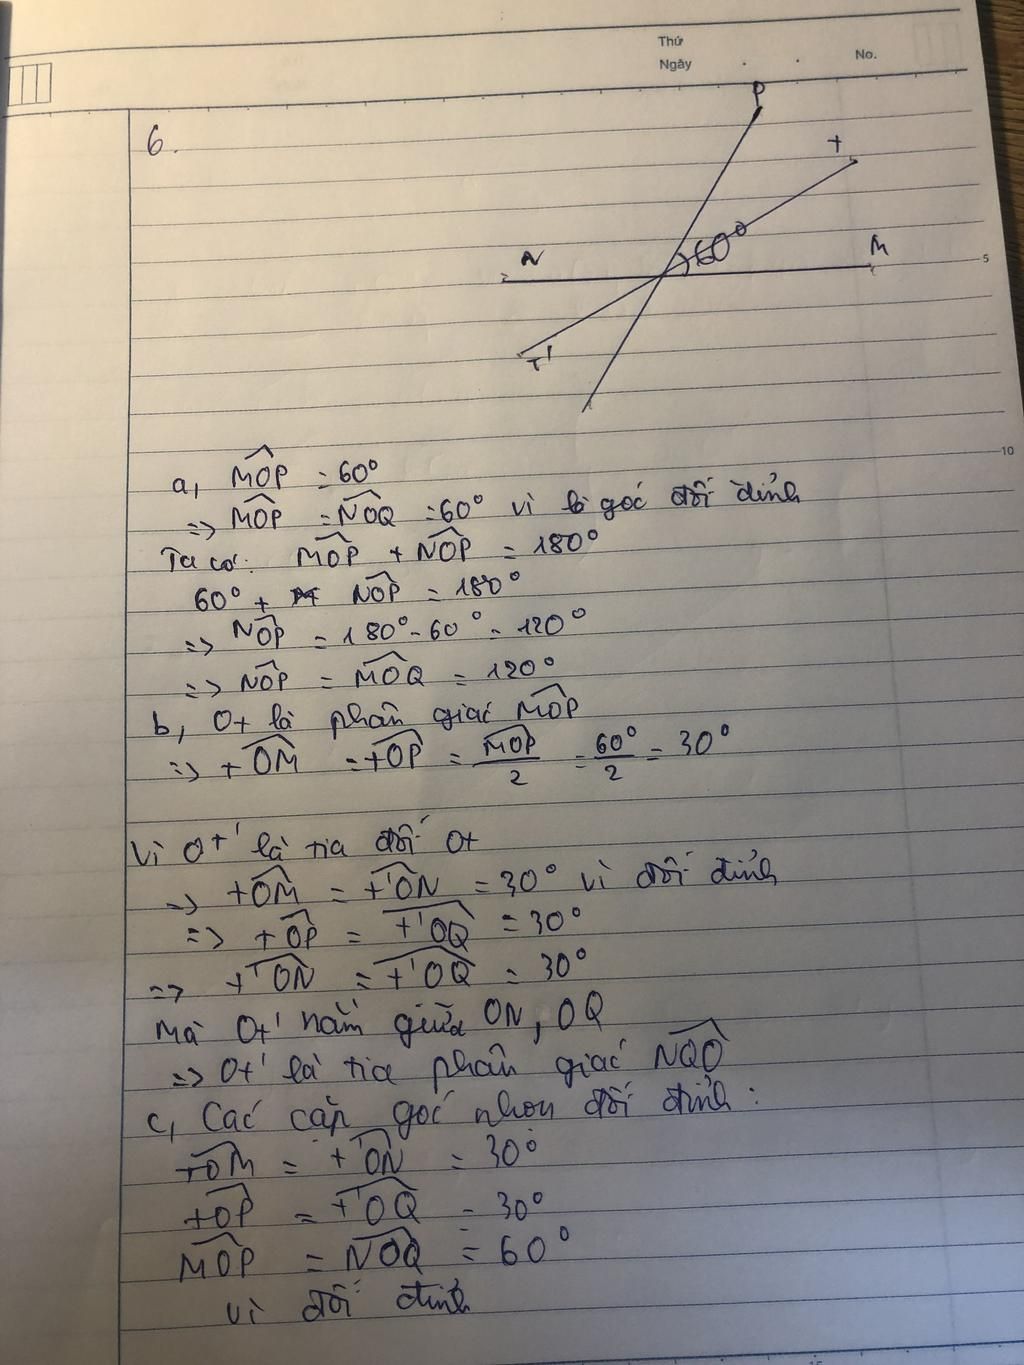 Thứ
Ngày
No.
6.
P
t
60°
N
M
5
T'
10
a, MOP = 60°
=> MOP = NOQ = 60° vì là góc đối đỉnh
Ta có: MOP + NOP = 180°
60° + NOP = 180°
=> NOP = 180° - 60° = 120°
=> NOP = MOQ = 120°
b, Ot là phân giác MOP
=> tOM = tOP = MOP/2 = 60°/2 = 30°
Vì Ot' là tia đối Ot
=> tOM = t'ON = 30° vì đối đỉnh
=> tOP = t'OQ = 30°
=> t'ON = t'OQ = 30°
Mà Ot' nằm giữa ON, OQ
=> Ot' là tia phân giác NQO
c, Các cặp góc nhọn đối đỉnh:
tOM = t'ON = 30°
tOP = t'OQ = 30°
MOP = NOQ = 60°
vì đối đỉnh
15